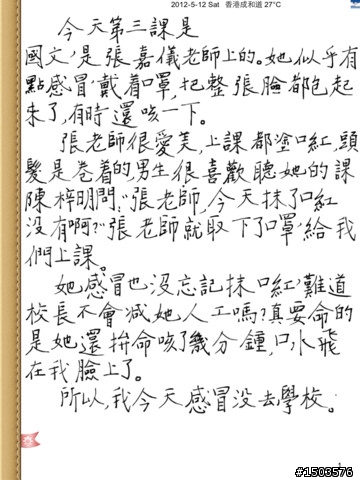 2012-5-12 Sat 香港成和道 27°C
今天第三課是
國文,是張嘉儀老師上的。她似乎有
點感冒,戴着口罩,把整張臉都包起
來了,有時還咳一下。
張老師很愛美,上課都塗口紅,頭
髮是卷着的,男生很喜歡聽她的課
陳梓明問:"張老師,今天抹了口紅
沒有啊?"張老師就取下了口罩,給我
們上課。
她感冒也沒忘記抹口紅,難道
校長不會减她人工嗎?真要命的
是她還拚命咳了幾分鐘,口水飛
在我臉上了。
所以,我今天感冒没去學校。
#1503576